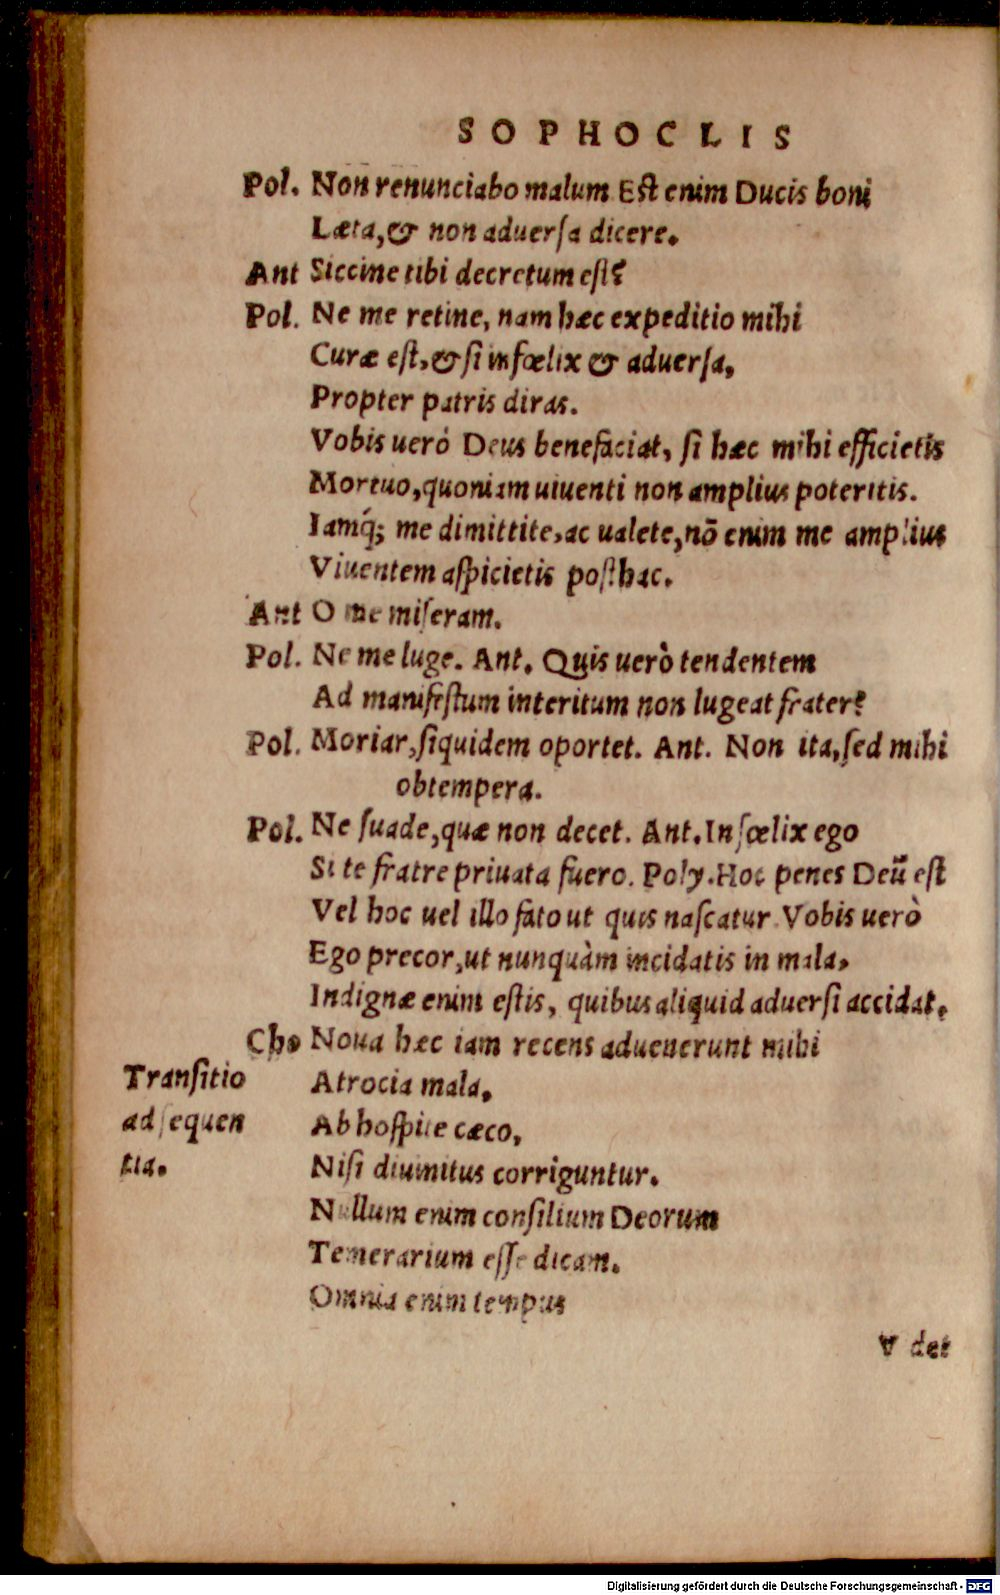 SOPHOCLIS
Pol. Non renunciabo malum Est enim Ducis boni
Læta, & non aduersa dicere.
Ant Siccine tibi decretum est?
Pol. Ne me retine, nam hæc expeditio mihi
Curæ est, & si infœlix & aduersa,
Propter patris diras.
Vobis ueró Deus benefaciat, si hæc mihi efficietis
Mortuo, quoniam uiuenti non amplius poteritis.
Iamq́; me dimittite, ac ualete, nō enim me amplius
Viuentem aspicietis posthac.
Ant O me miseram.
Pol. Ne me luge. Ant. Quis uerò tendentem
Ad manifestum interitum non lugeat frater?
Pol. Moriar, siquidem oportet. Ant. Non ita, sed mihi
obtempera.
Pol. Ne suade, quæ non decet. Ant. Infœlix ego
Si te fratre priuata fuero. Poly. Hoc penes Deū est
Vel hoc uel illo fato ut quis nascatur Vobis uerò
Ego precor, ut nunquàm incidatis in mala,
Indignæ enim estis, quibus aliquid aduersi accidat.
Cho Noua hæc iam recens aduenerunt mihi
Transitio
ad sequen
tia.
Atrocia mala,
Ab hospite cæco,
Nisi diuinitus corriguntur.
Nullum enim consilium Deorum
Temerarium esse dicam.
Omnia enim tempus
V det
Digitalisierung gefördert durch die Deutsche Forschungsgemeinschaft - DFG